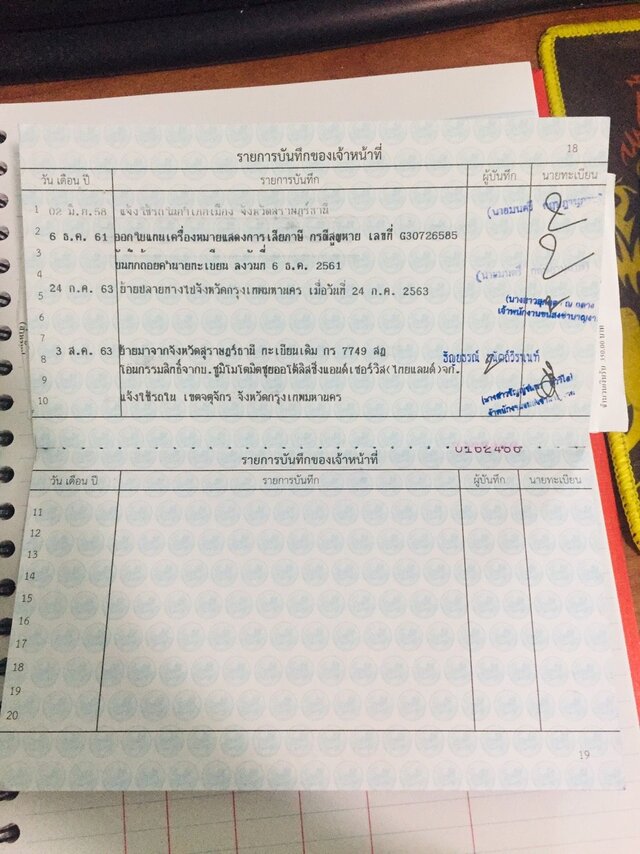 18
รายการบันทึกของเจ้าหน้าที่
วัน เดือน ปี รายการบันทึก ผู้บันทึก นายทะเบียน
1 02 มิ.ย.58 แจ้งใช้รถในอำเภอเมือง จังหวัดสุราษฎร์ธานี (นายมนตรี
2 6 ธ.ค. 61 ออกใบแทนเครื่องหมายแสดงการเสียภาษี กรณีสูญหาย เลขที่ G30726585
3 บันทึกถ้อยคำนายทะเบียน ลงวันที่ 6 ธ.ค. 2561
4 (นายมนตรี
5 24 ก.ค. 63 ย้ายปลายทางไปจังหวัดกรุงเทพมหานคร เมื่อวันที่ 24 ก.ค. 2563
6 (นางสาว ณ ถลาง
เจ้าพนักงานขนส่งชำนาญงาน
7
3 ส.ค. 63 ย้ายมาจากจังหวัดสุราษฎร์ธานี ทะเบียนเดิม กร 7749 สฎ
8 โอนกรรมสิทธิ์จากบ.ซูมิโมโตมิตซุยออโต้ลิสซิ่งแอนด์เซอร์วิส(ไทยแลนด์)จก.
9
10 แจ้งใช้รถใน เขตจตุจักร จังหวัดกรุงเทพมหานคร
0162466
รายการบันทึกของเจ้าหน้าที่
วัน เดือน ปี รายการบันทึก ผู้บันทึก นายทะเบียน
11
12
13
14
15
16
17
18
19
20
19